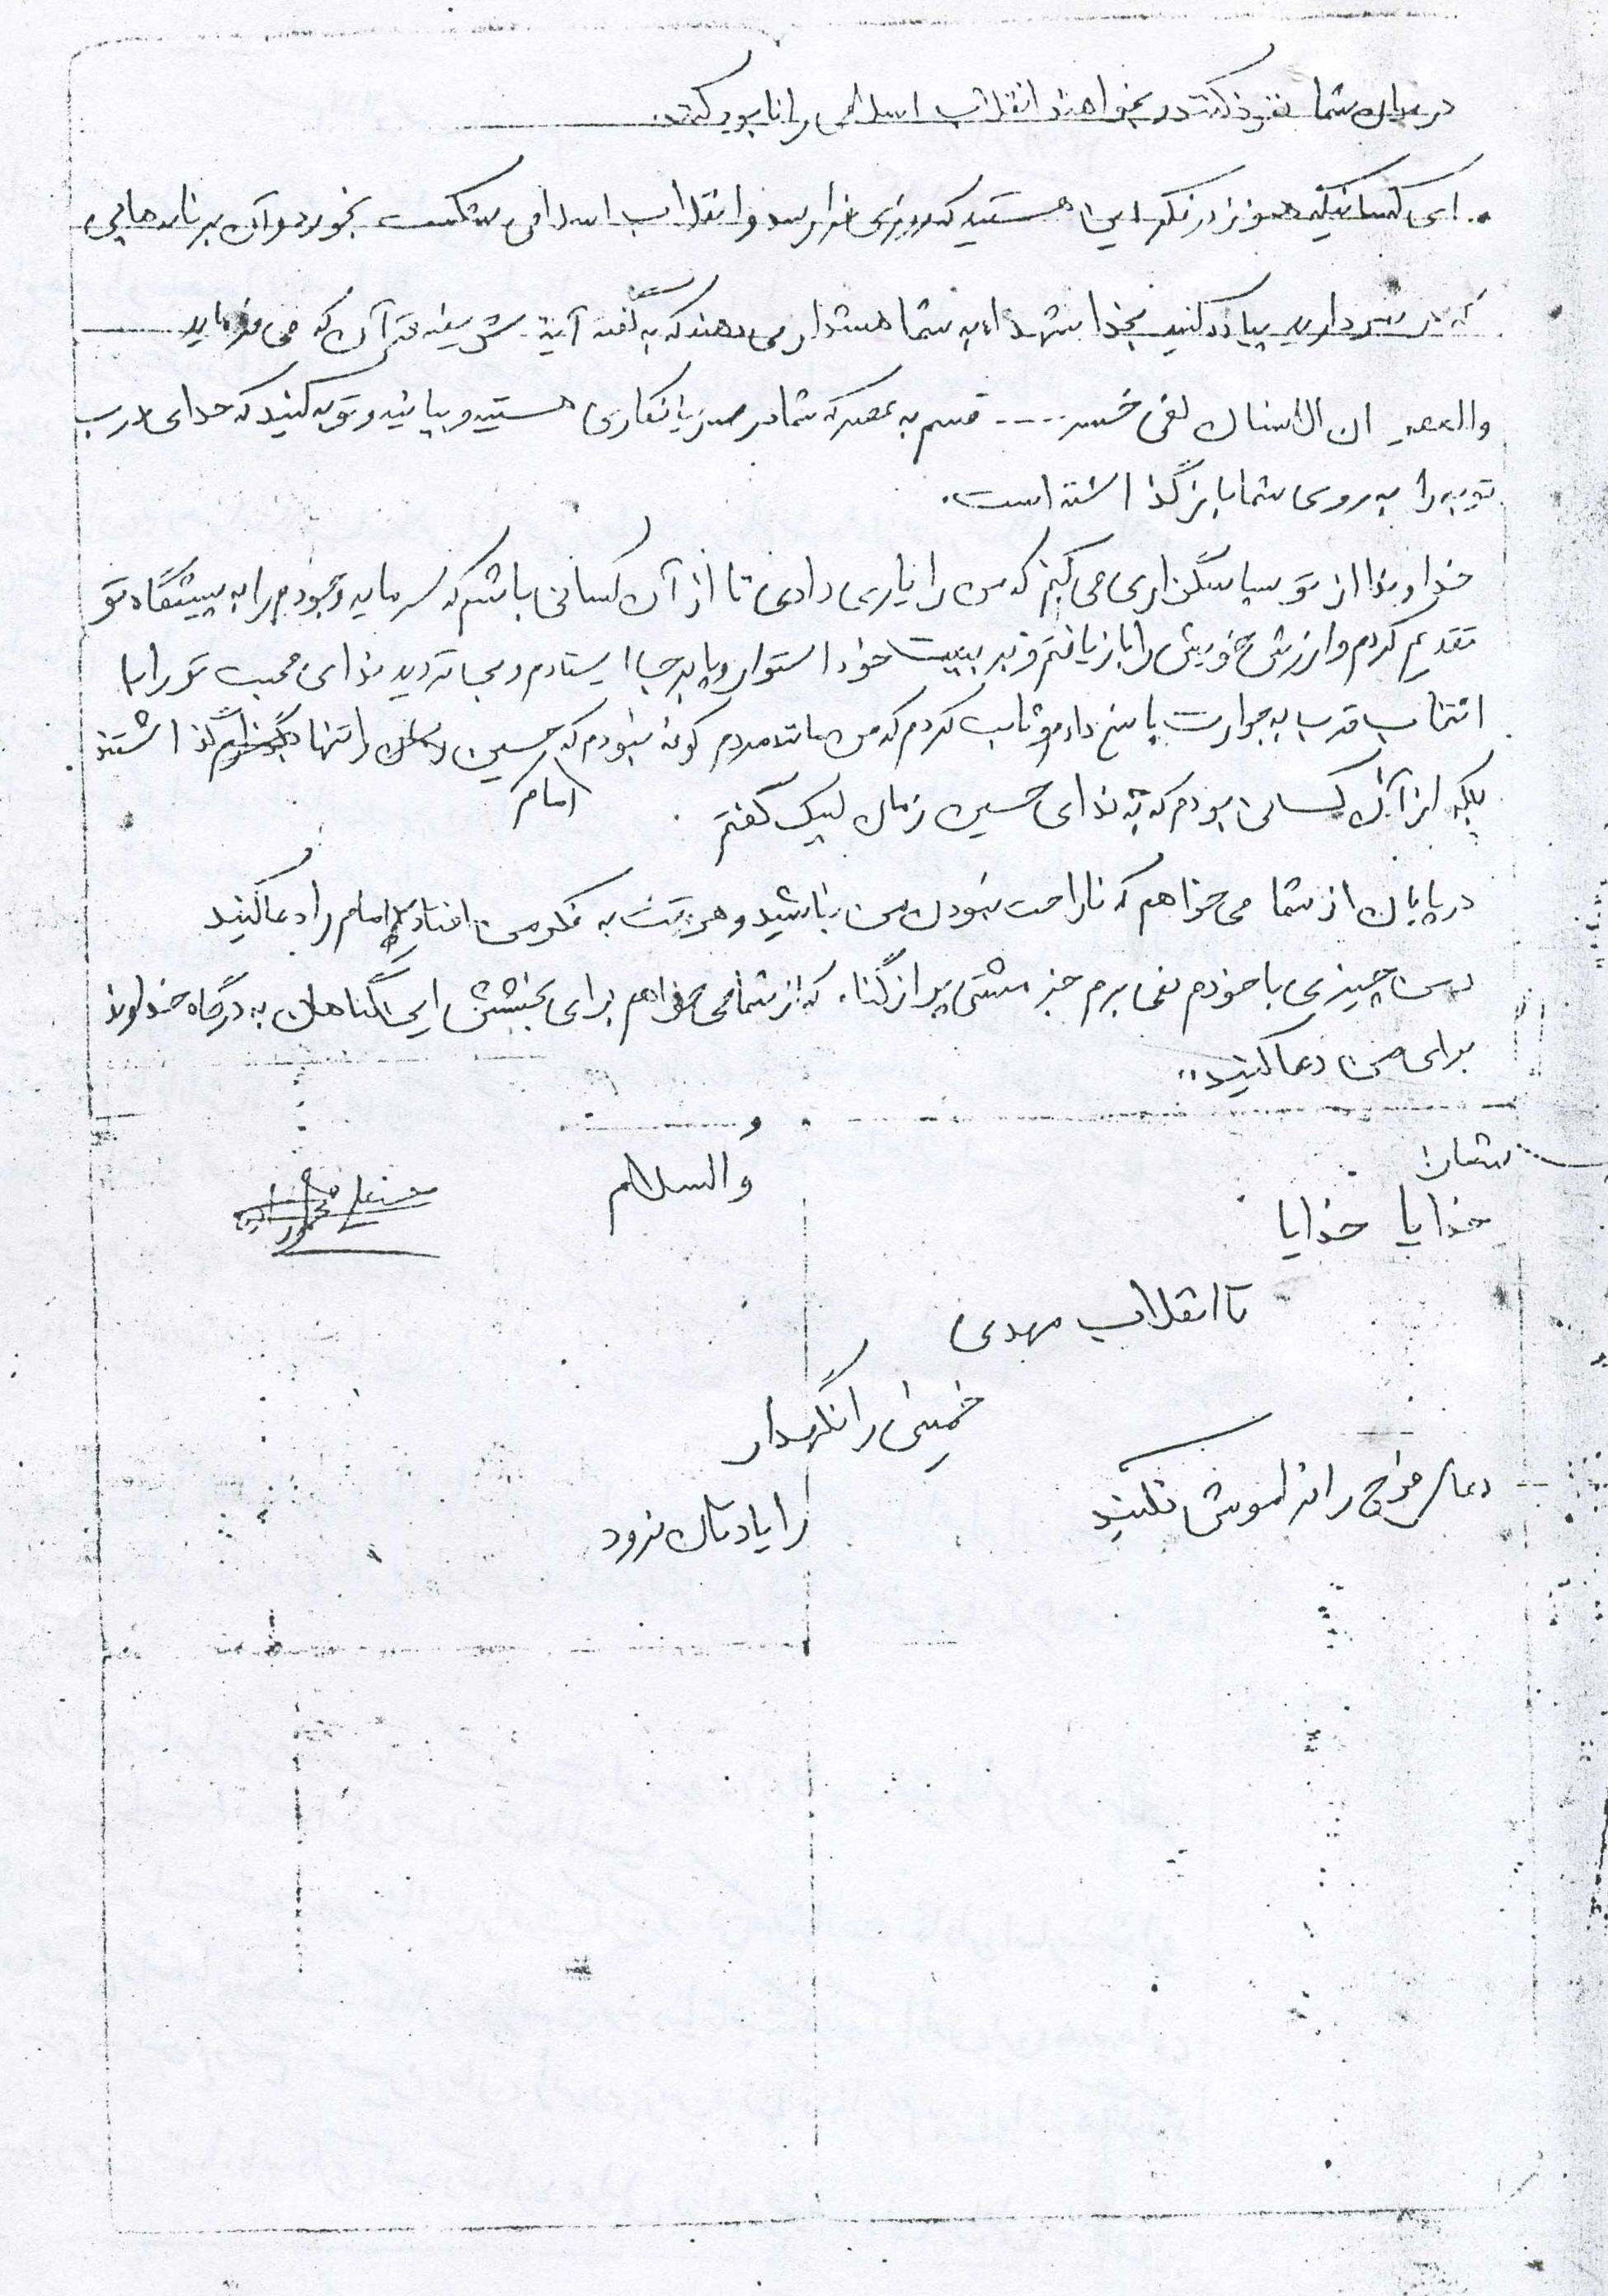 در میان شما نفوذ کنند و بخواهند انقلاب اسلامی را نابود کنند.
. ای کسانیکه هنوز در فکر این هستید که روزی فرا رسد و انقلاب اسلامی شکست بخورد و آن برنامه‌هایی
که در سر دارید پیاده کنید بخدا شهداء به شما هشدار می دهند که به گفته آیة شریفه قرآن که می فرماید
والعصر ان الانسان لفی خسر .... قسم به عصر که شما در ضرر و زیانکاری هستید و بیائید و توبه کنید که خدای درب
توبه را به روی شما باز گذاشته است.
خداوندا از تو سپاسگزاری می کنم که من را یاری دادی تا از آن کسانی باشم که سرمایه وجودم را به پیشگاه تو
تقدیم کردم و ارزش خویش را باز یافتم و بر بیعت خود استوار و پابرجا ایستادم و بی تردید ندای محبت تو را با
انتخاب قرب به جوارت پاسخ دادم و ثابت کردم که من مانند مردم کوفه نبودم که حسین را تنها گذاشتند
امام
بلکه از آن کسانی بودم که به ندای حسین زمان لبیک گفتم
در پایان از شما می خواهم که ناراحت نبودن من نباشید و هر وقت به فکر من افتادید امام را دعا کنید
و من چیزی با خودم نمی برم جز مشتی پر از گناه که از شما می خواهم برای بخشش این گناهان به درگاه خداوند
برای من دعا کنید..
والسلام
خدایا خدایا
تا انقلاب مهدی
خمینی را نگهدار
دعای فرج را فراموش نکنید
را یادتان نرود